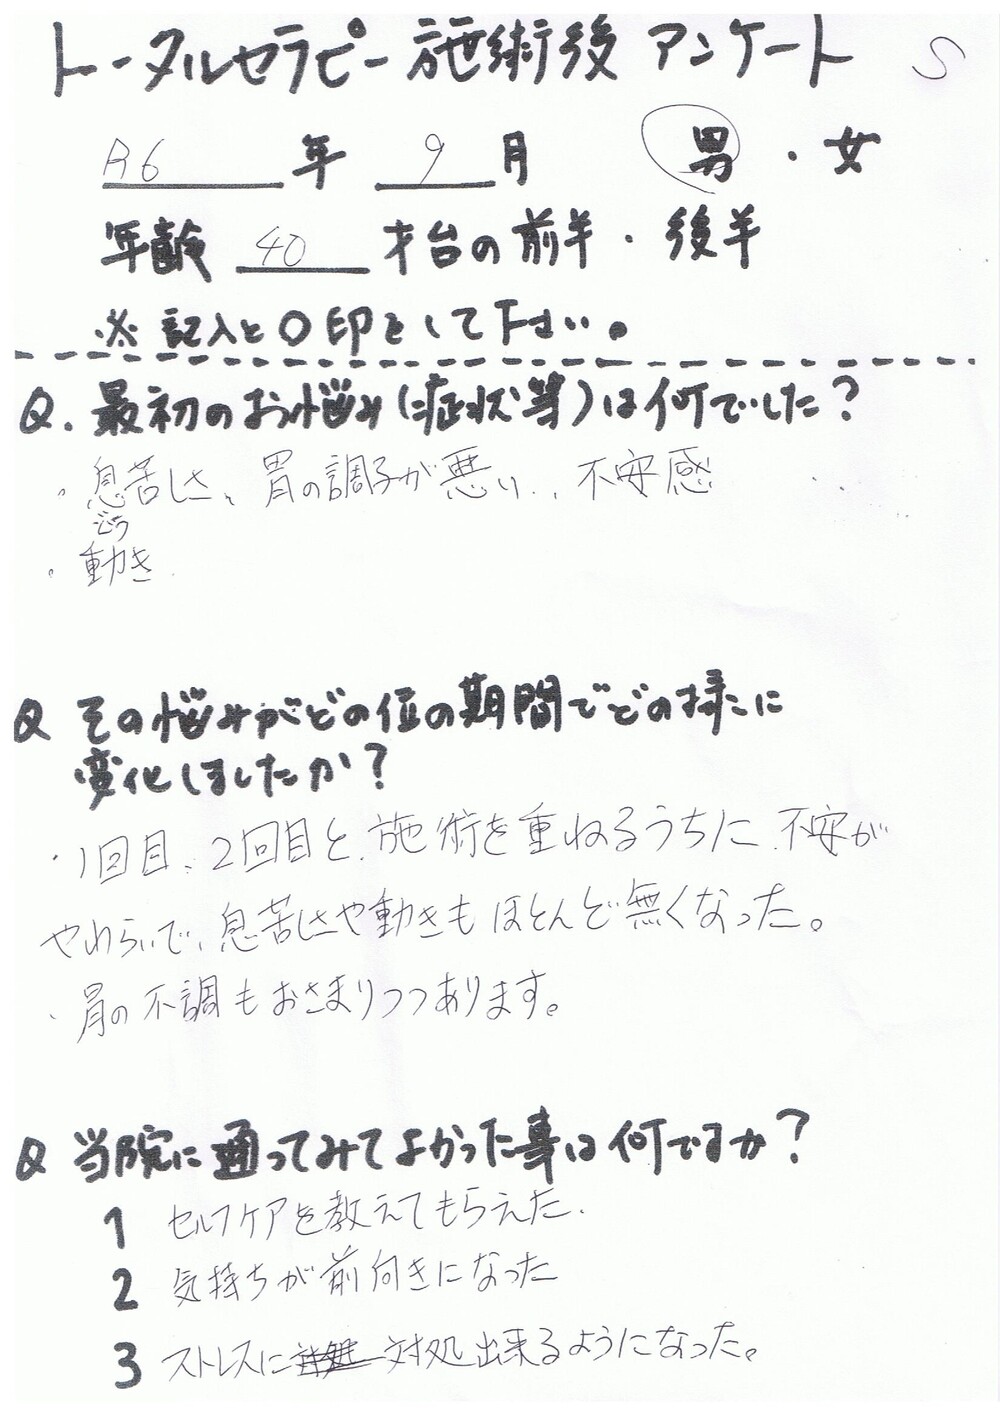 トータルセラピー施術後 アンケート S
R6 年 9 月 男・女
年齢 40 才台の前半・後半
※ 記入と○印をして下さい。
Q. 最初のお悩み(症状等)は何でしたか?
・息苦しさ、胃の調子が悪い、不安感
どう
・動き
Q その悩みがどの位の期間でどの様に
変化しましたか?
・1回目、2回目と、施術を重ねるうちに、不安が
やわらいで、息苦しさや動きもほとんど無くなった。
・胃の不調もおさまりつつあります。
Q 当院に通ってみてよかった事は何ですか?
1 セルフケアを教えてもらえた.
2 気持ちが前向きになった
3 ストレスに 対処出来るようになった。